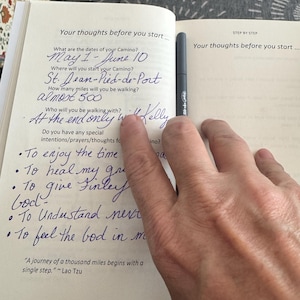 Your thoughts before you start...
What are the dates of your Camino?
May 1 - June 10
Where will you start your Camino?
St Jean-Pied-de-Port
How many miles will you be walking?
almost 500
Who will you be walking with?
At the end only with Kelly
Do you have any special
intentions/prayers/thoughts
• To enjoy the time
• To heal my
• To give Finley
God
• To Understand next
• To feel the God in
"A journey of a thousand miles begins with a
single step." ~ Lao Tzu
STEP BY STEP
Your thoughts before you start...